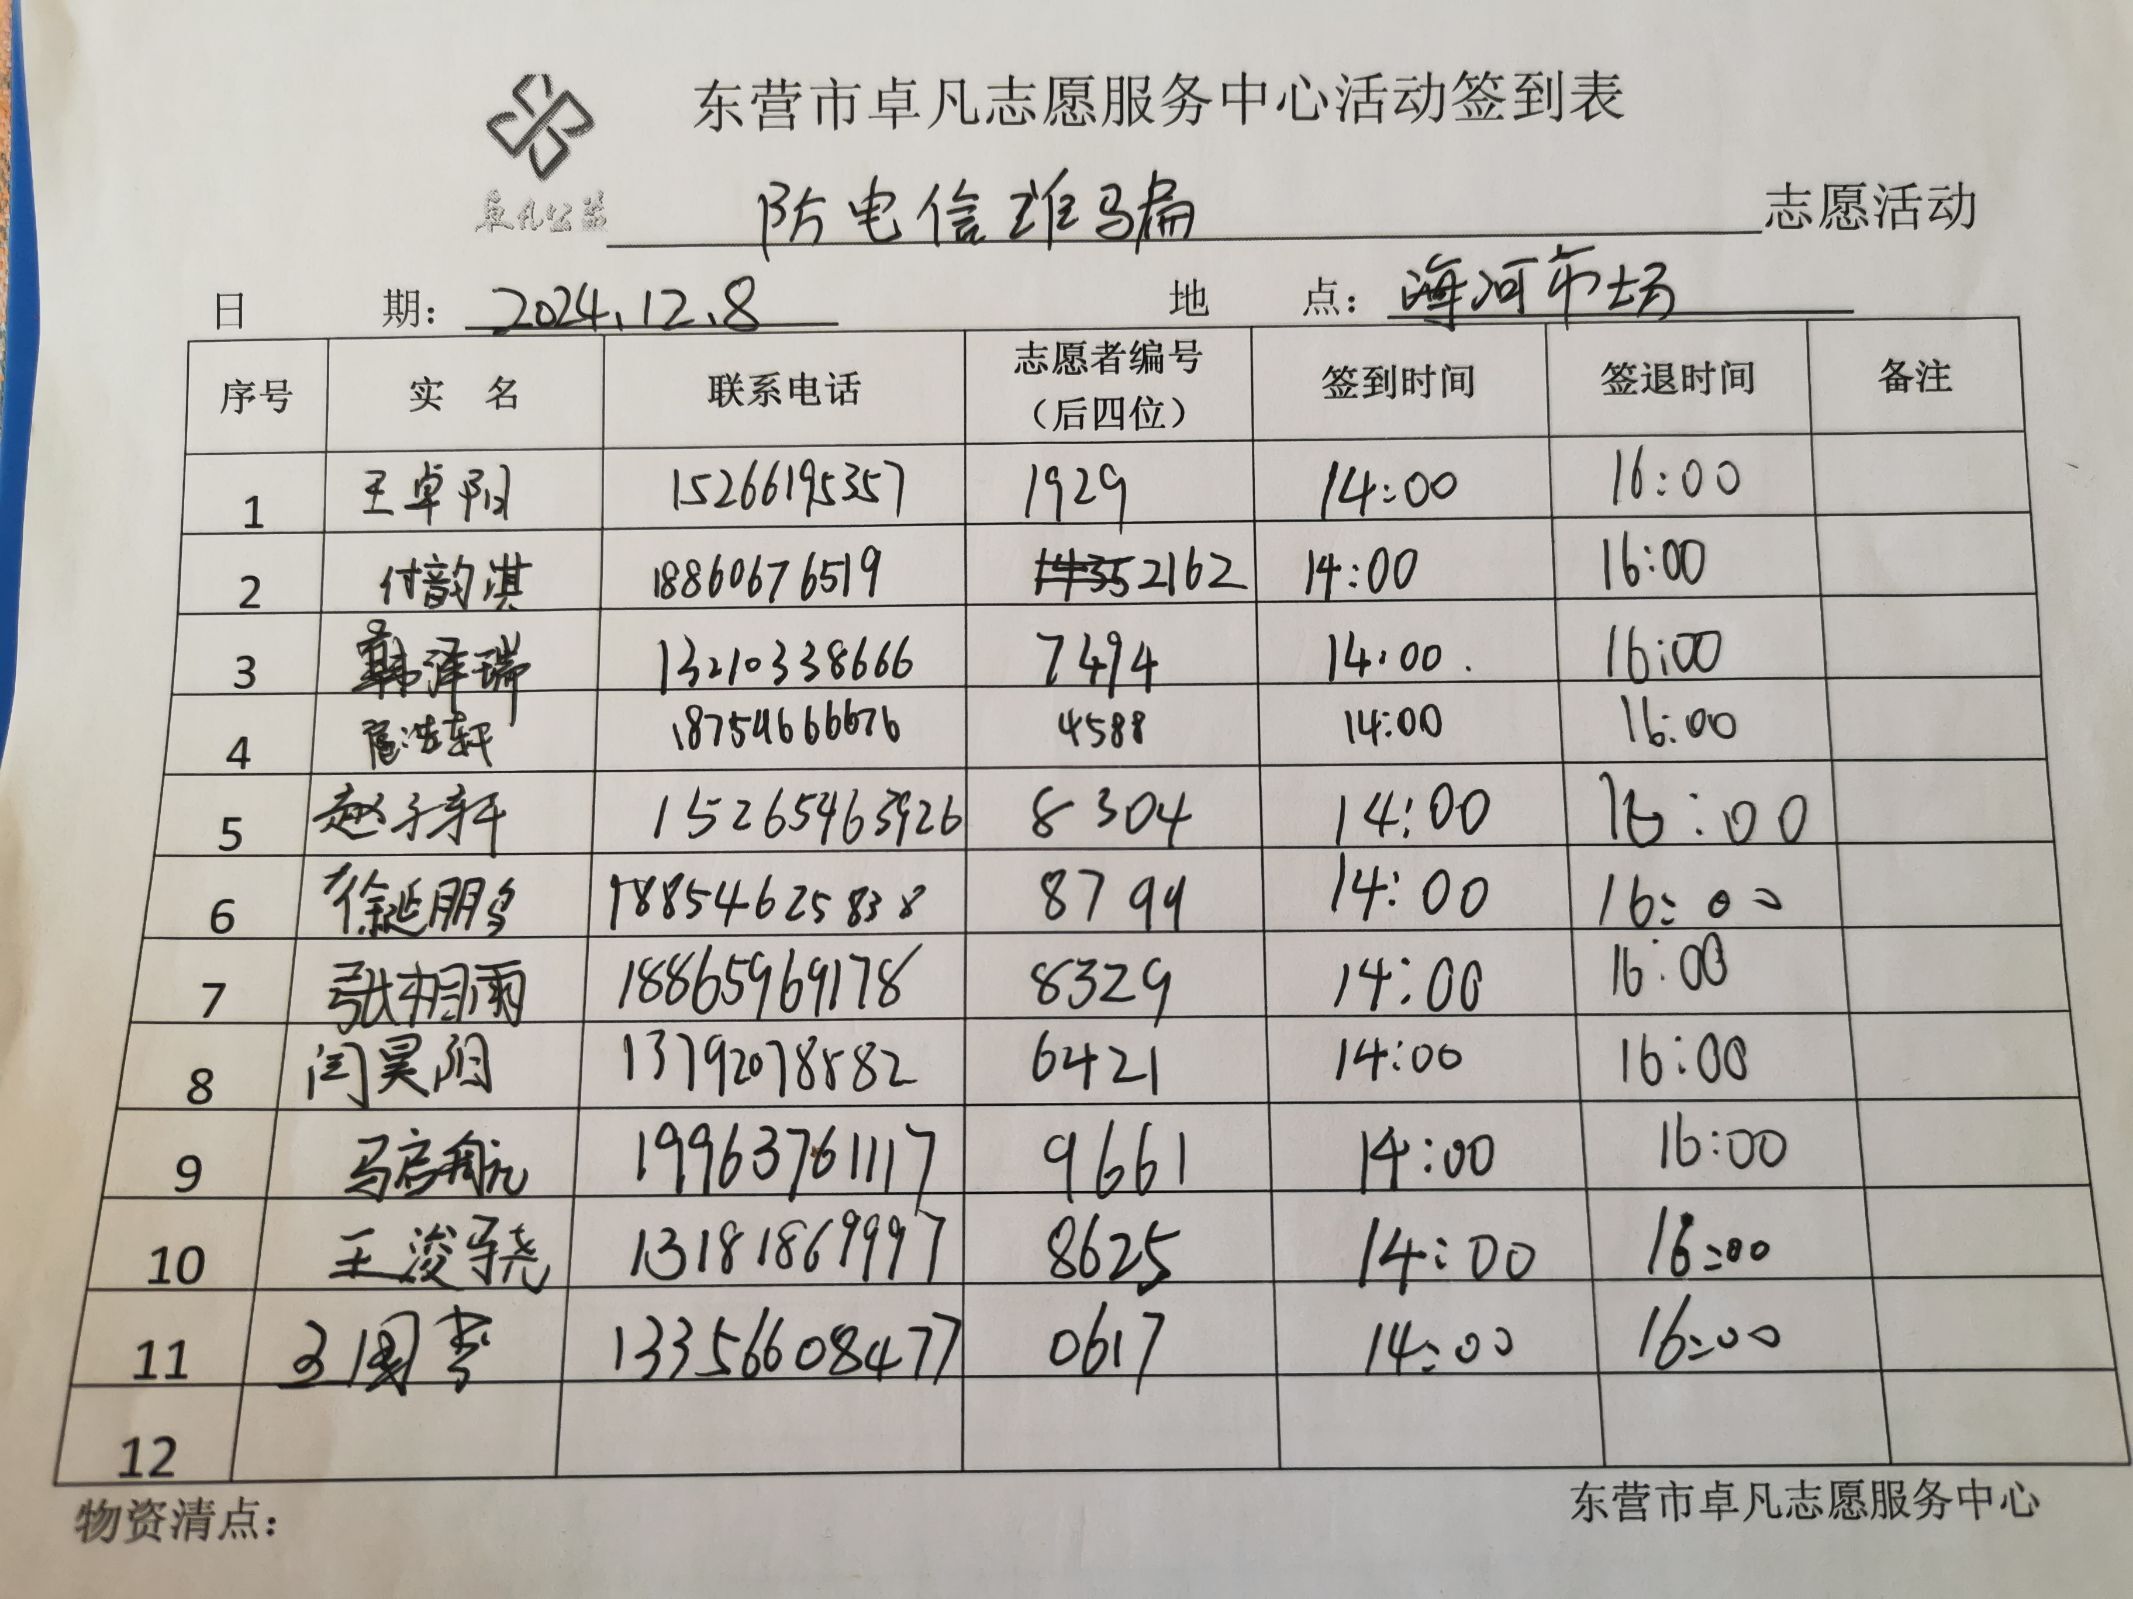 东营市卓凡志愿服务中心活动签到表
卓凡公益
防电信诈骗 志愿活动
日期：2024.12.8 地点：海河市场
序号 实名 联系电话 志愿者编号（后四位） 签到时间 签退时间 备注
1 王卓阳 15266195357 1929 14:00 16:00
2 付韵淇 18860676519 2162 14:00 16:00
3 韩泽瑞 13210338666 7494 14:00 16:00
4 扈浩轩 18754666676 4588 14:00 16:00
5 赵子轩 15265463926 8304 14:00 16:00
6 徐延朋 18854625838 8799 14:00 16:00
7 张栩雨 18865969178 8329 14:00 16:00
8 闫昊阳 13792078582 6421 14:00 16:00
9 马启航 19963761117 9661 14:00 16:00
10 王浚骁 13181869997 8625 14:00 16:00
11 王国 13356608477 0617 14:00 16:00
12
物资清点： 东营市卓凡志愿服务中心